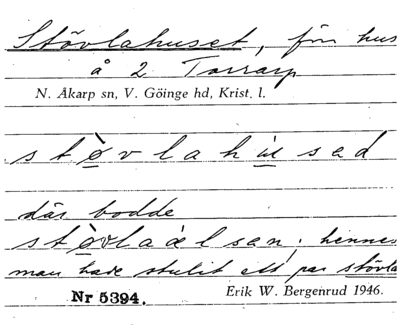 Stövlahuset, f̈n hus
å 2 Tararp
N. Åkarp sn, V. Göinge hd, Krist. l.
stø̀vlahúsad
där bodde
stø̀vlaàelsan; hennes
man hade stulit ett par stövla
Nr 5394. Erik W. Bergenrud 1946.